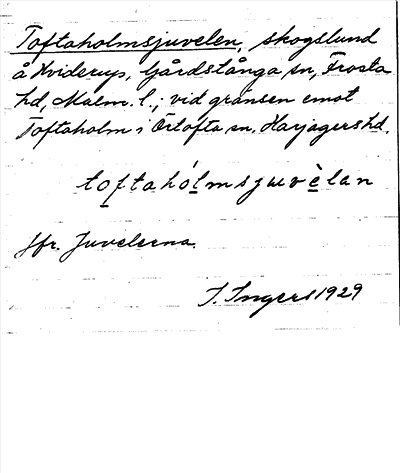 Toftaholmsjuvelen, skogslund
å Hviderup, Gårdstånga sn, Frosta
hd, Malm. l.; vid gränsen emot
Toftaholm i Örtofta sn. Harjagers hd.
toftahólmsjuvèlan
Jfr. Juvelerna.
I. Ingers 1929